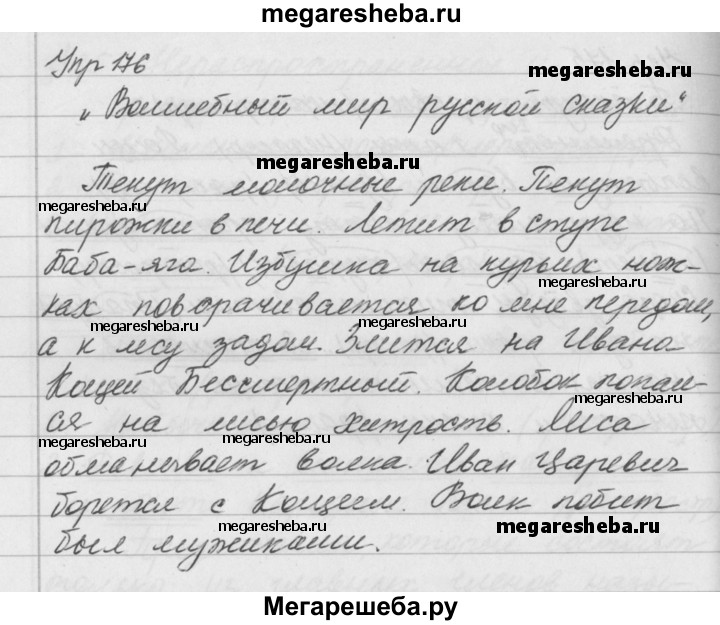 megaresheba.ru
Упр 176
megaresheba.ru
„Волшебный мир русской сказки“
megaresheba.ru
Текут молочные реки. Пекут
megaresheba.ru
пирожки в печи. Летит в ступе
megaresheba.ru
Баба-яга. Избушка на курьих нож-
megaresheba.ru
ках поворачивается ко мне передом,
megaresheba.ru
megaresheba.ru
а к лесу задом. Злится на Ивана
Кощей Бессмертный. Колобок попал-
megaresheba.ru
ся на лисью хитрость. Лиса
megaresheba.ru
megaresheba.ru
megaresheba.ru
обманывает волка. Иван Царевич
борется с Кощеем. Волк побит
megaresheba.ru
megaresheba.ru
был мужиками.
megaresheba.ru
Мегарешеба.ру